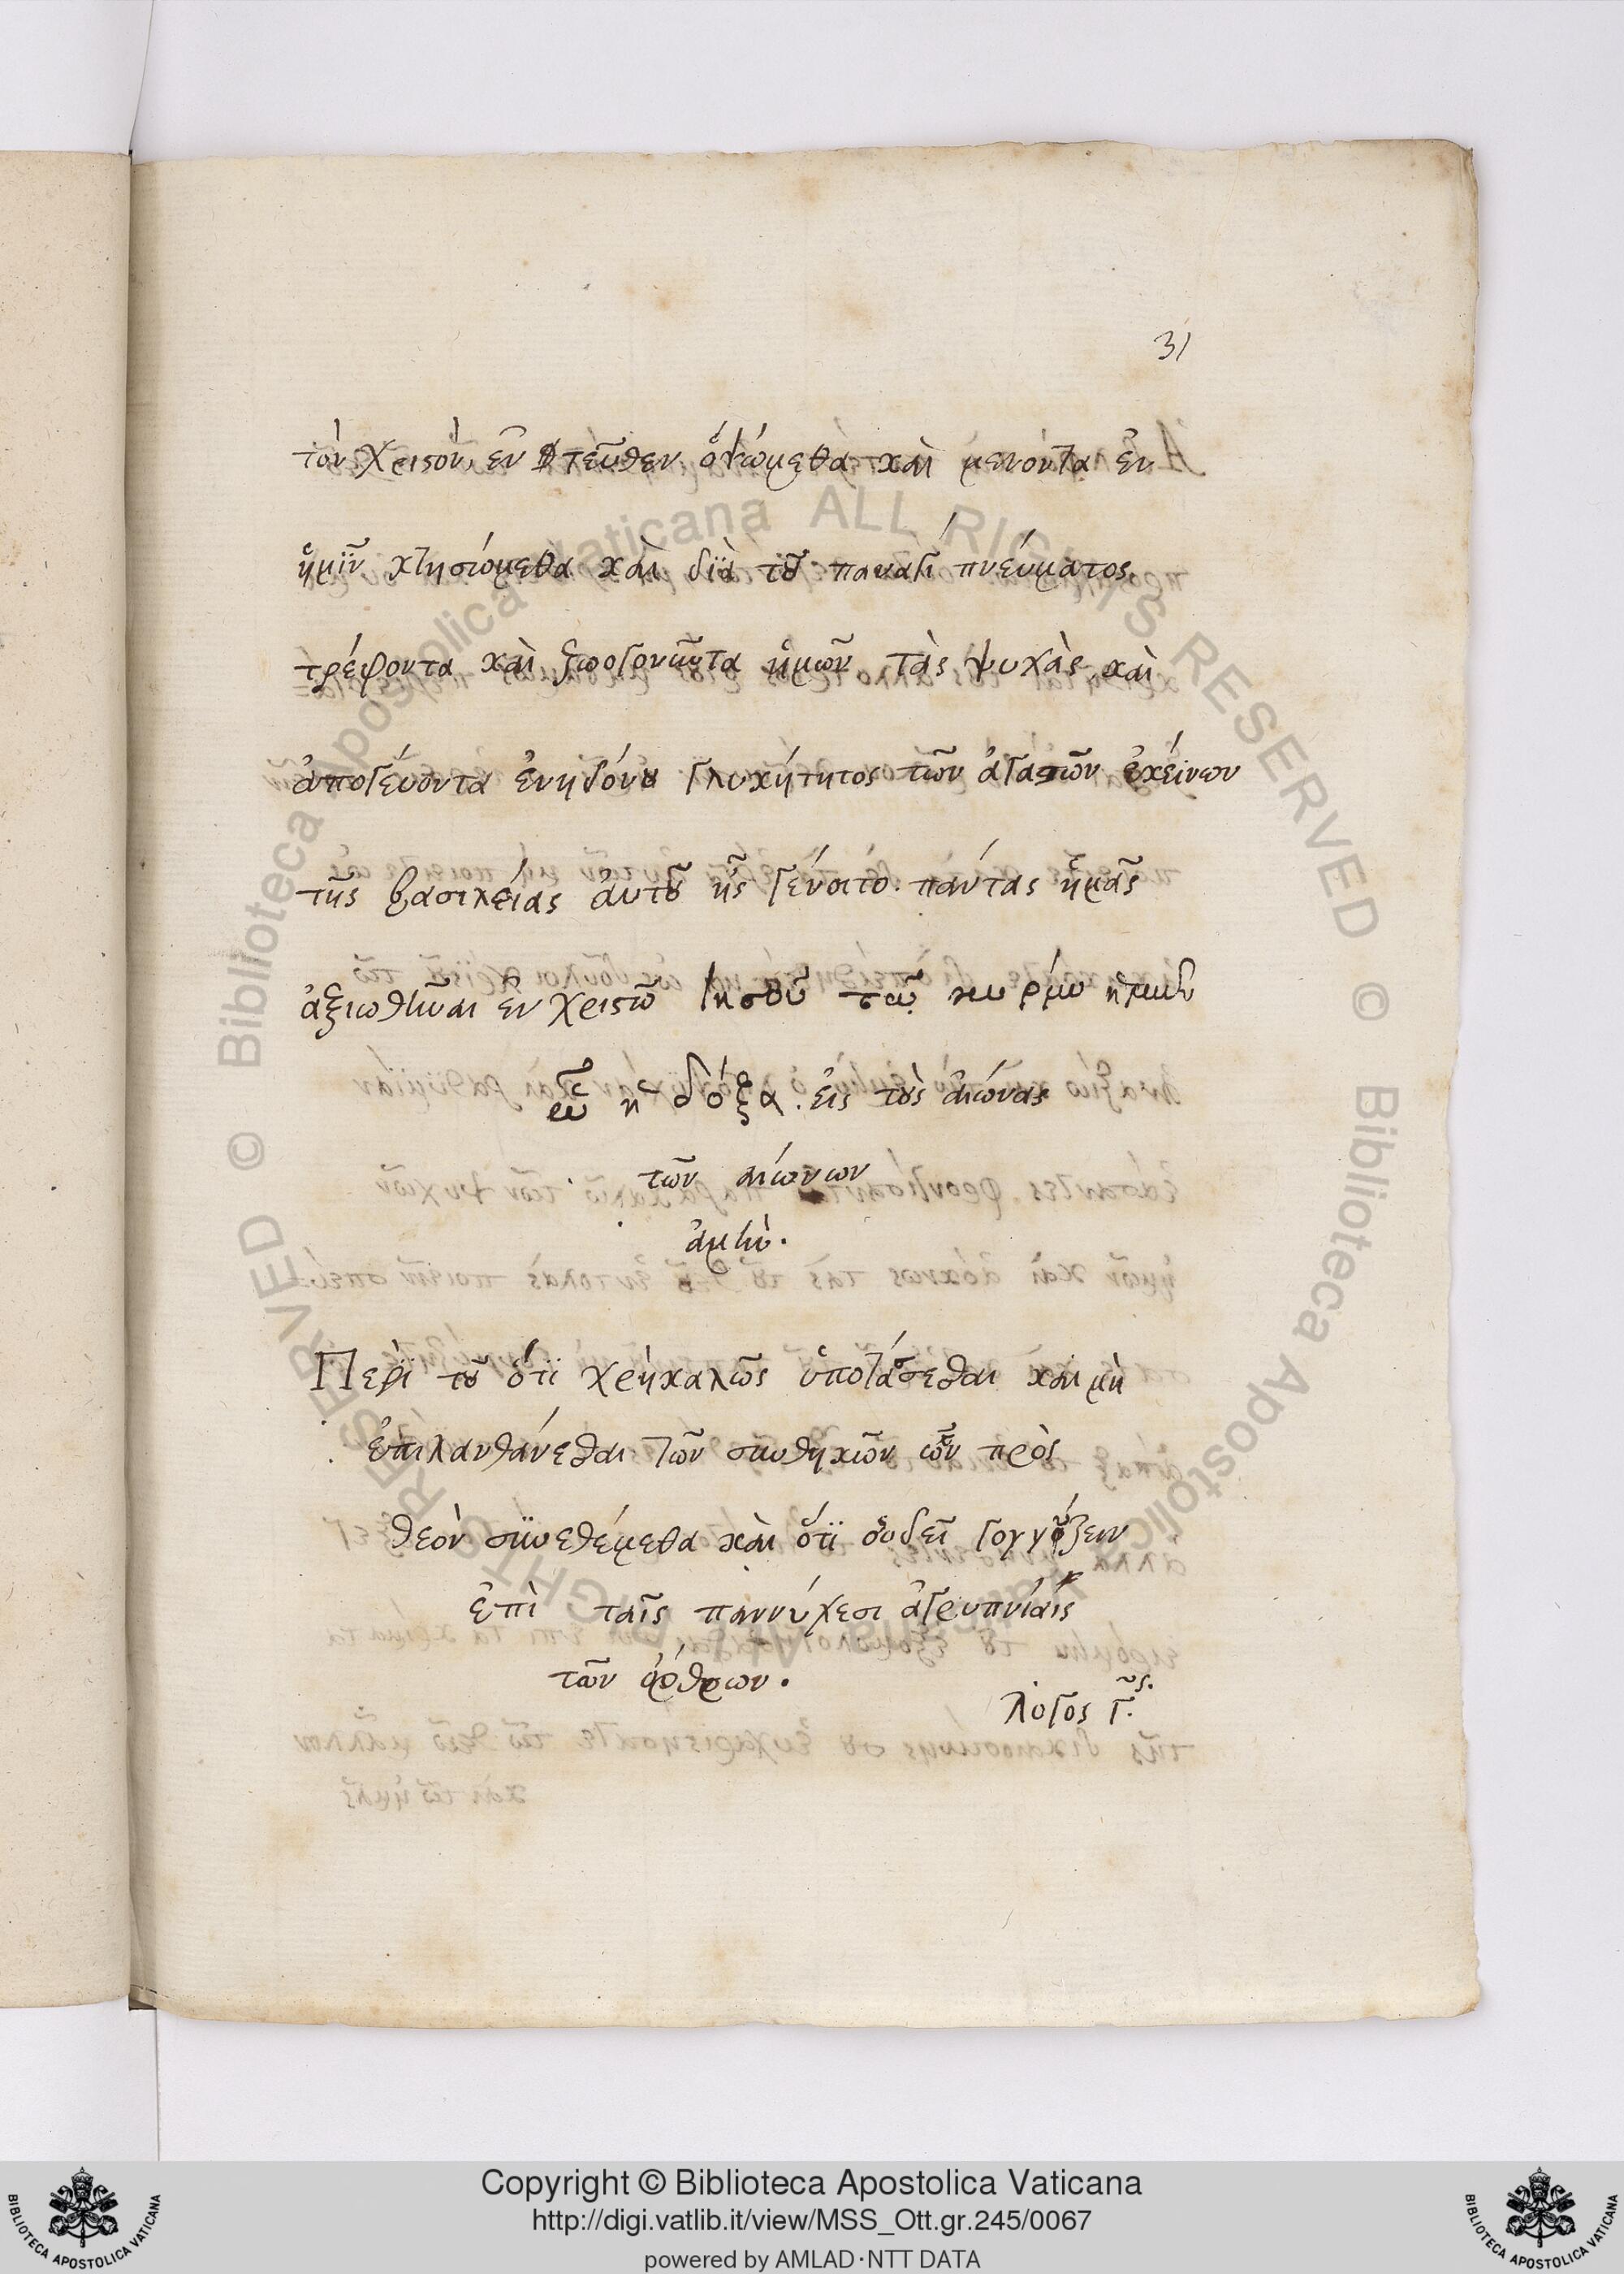 31
τὸν Χριστὸν ἐν τεῦθεν ὀψώμεθα καὶ μενόντα ἐν
ἡμῖν κτησιόμεθα καὶ διὰ τοῦ παναγί πνεύματος
τρέφοντα καὶ ζωογονοῦντα ἡμῶν τὰς ψυχὰς καὶ
ἀπογέυοντα ἐνηδόνου γλυκήτητος τῶν ἀγαθῶν ἐκείνων
τῆς βασιλείας ἀυτοῦ ἧς γένοιτο πάντας ἡμᾶς
ἀξιωθῆναι ἐν Χριστῶ Ιησοῦ τῶ κυρίω ἡμῶν
ὧ ἡ δόξα. εἰς τοὺς ἀιώνας
τῶν αιώνων
ἀμὴν.
Περὶ τοῦ ὅτϊ χρὴ καλῶς ὑποτάσεσθαι καὶ μὴ
ἐπιλανθάνεσθαι τῶν συνθηκῶν ὧν πρὸς
θεὸν συνεθέμεθα καὶ ὅτϊ οὐ δεῖ γογγύζειν
ἐπὶ ταῖς παννύχεσι ἀγρυπνίαις
τῶν ὀρθρων.
λόγος γ.ος
Copyright © Biblioteca Apostolica Vaticana
http://digi.vatlib.it/view/MSS_Ott.gr.245/0067
powered by AMLAD·NTT DATA
BIBLIOTECA APOSTOLICA VATICANA
BIBLIOTECA APOSTOLICA VATICANA